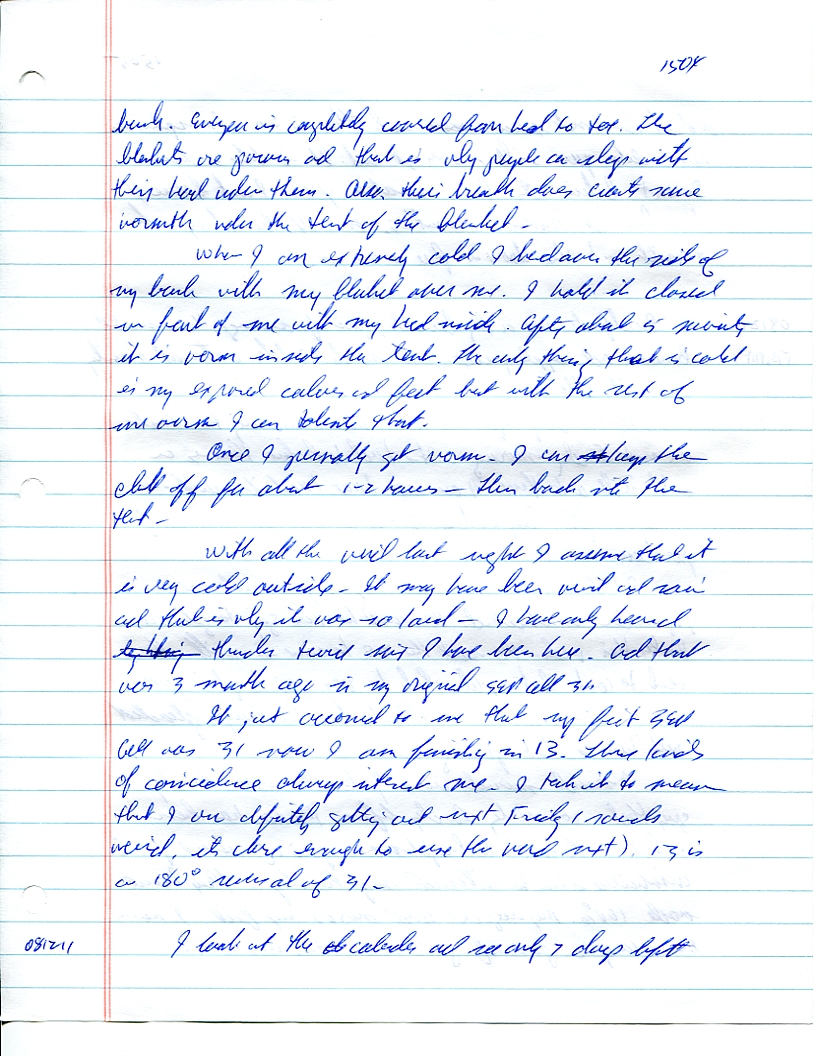 1504
bunk. Everyone is completely covered from head to toe. The
blankets are porous and that is why people can sleep with
their head under them. Also, their breath does create some
warmth under the tent of the blanket -
When I am extremely cold I the side of
my bunk with my blanket over me. I hold it closed
in front of me with my head inside. After about 15 minutes
it is warm inside the tent. The only thing that is cold
is my exposed calves and feet but with the rest of
me warm I can tolerate that.
Once I personally get warm - I can keep the
chill off for about 1-2 hours - then back into the
tent -
With all the wind last night I assume that it
is very cold outside - It may have been wind and rain
and that is why it was so loud - I have only heard
thunder twice since I have been here. And that
was 3 months ago in my original cell 31.
It just occurred to me that my first
cell was 31 now I am finishing in 13. These kinds
of coincidence always interest me. I take it to mean
that I am definitely getting out next Friday (sounds
weird, it's close enough to use the word next). 13 is
a 180° reversal of 31 -
081211 I look at the calendar and see only 7 days left